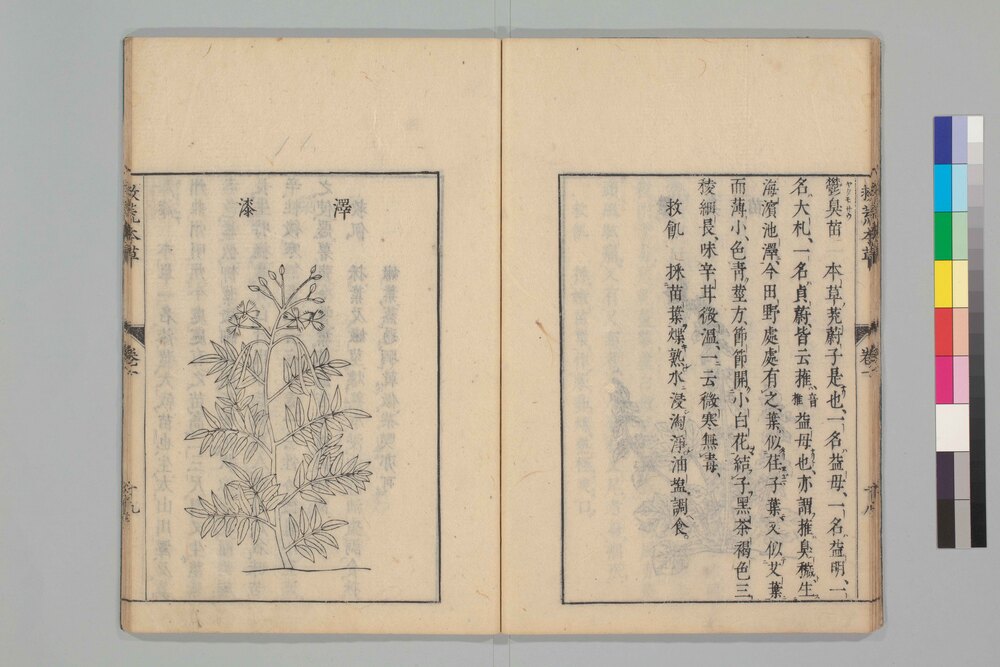 救荒本草
鬱臭苗　本草茺蔚子是也、一名益母、一名益明、一
名大札、一名貞蔚皆云蓷音推益母也、亦謂蓷臭穢、生
海濱池澤、今田野處處有之、葉似荏子葉、又似艾葉
而薄小、色青、莖方、節節開小白花、結子黑茶褐色、三
稜細長、味辛甘、微溫、一云微寒無毒、
救飢　採苗葉煠熟、水浸淘淨、油鹽調食
澤漆
救荒本草